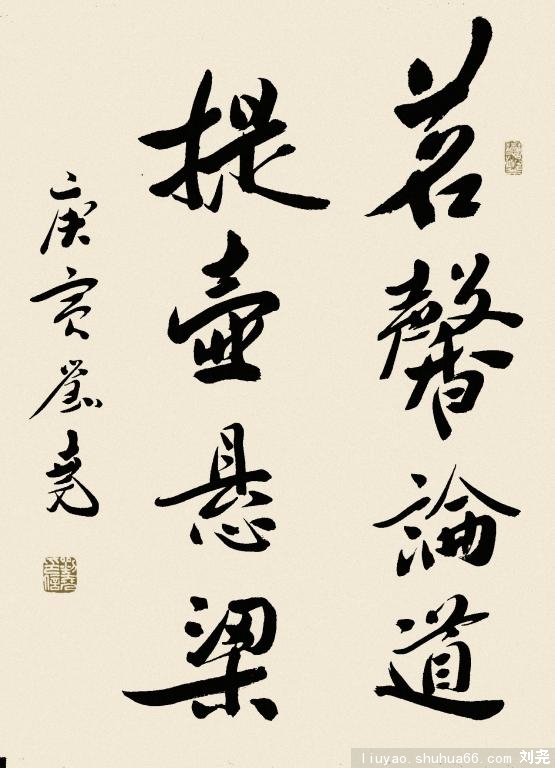 茗馨論道
提壺悬梁
庚寅劉堯
liuyao.shuhua66.com 刘尧